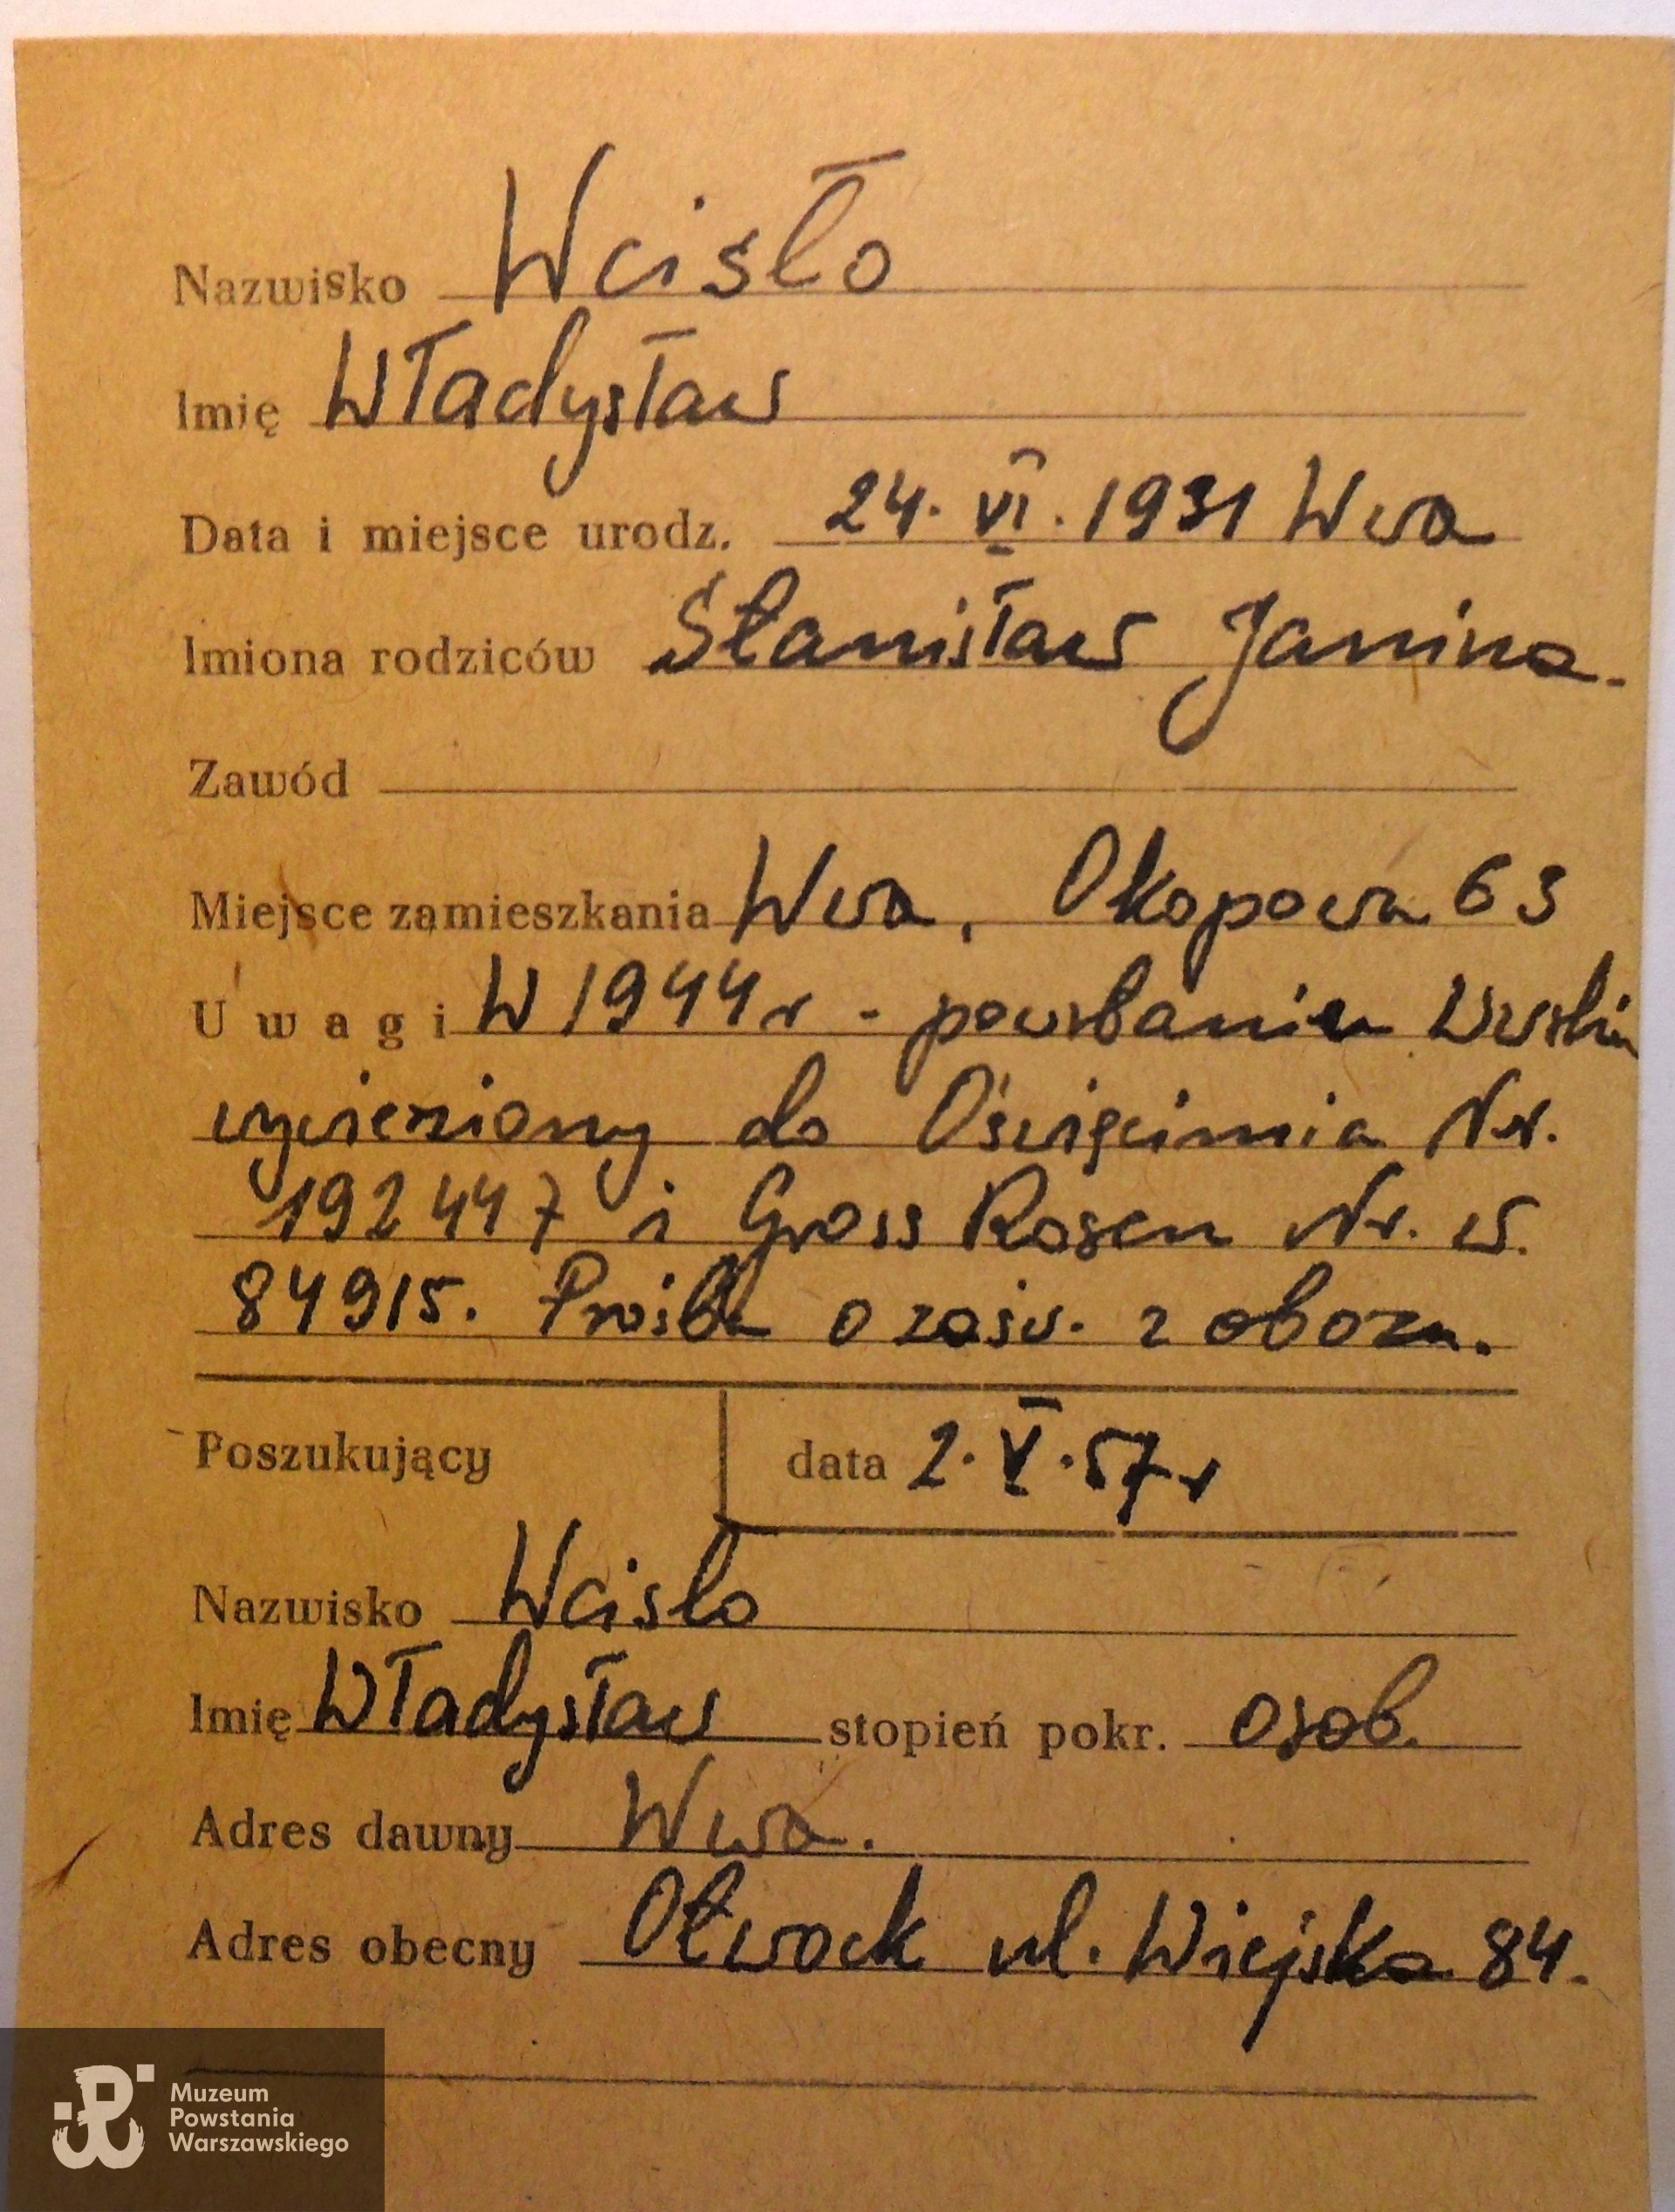 Nazwisko Wcisło
Imię Władysław
Data i miejsce urodz. 24. VI. 1931 Wwa
Imiona rodziców Stanisław Janina.
Zawód
Miejsce zamieszkania Wwa, Okopowa 63
Uwagi W 1944 r - powstaniu
wywieziony do Oświęcimia Nr.
192447 i Gross Rosen Nr. w.
84915. Prośba o zaśw. z obozu.
Poszukujący
data 2. V. 57 r
Nazwisko Wcislo
Imię Władysław stopień pokr. osob.
Adres dawny Wwa.
Adres obecny Otwock ul. Wiejska 84.
Muzeum
Powstania
Warszawskiego